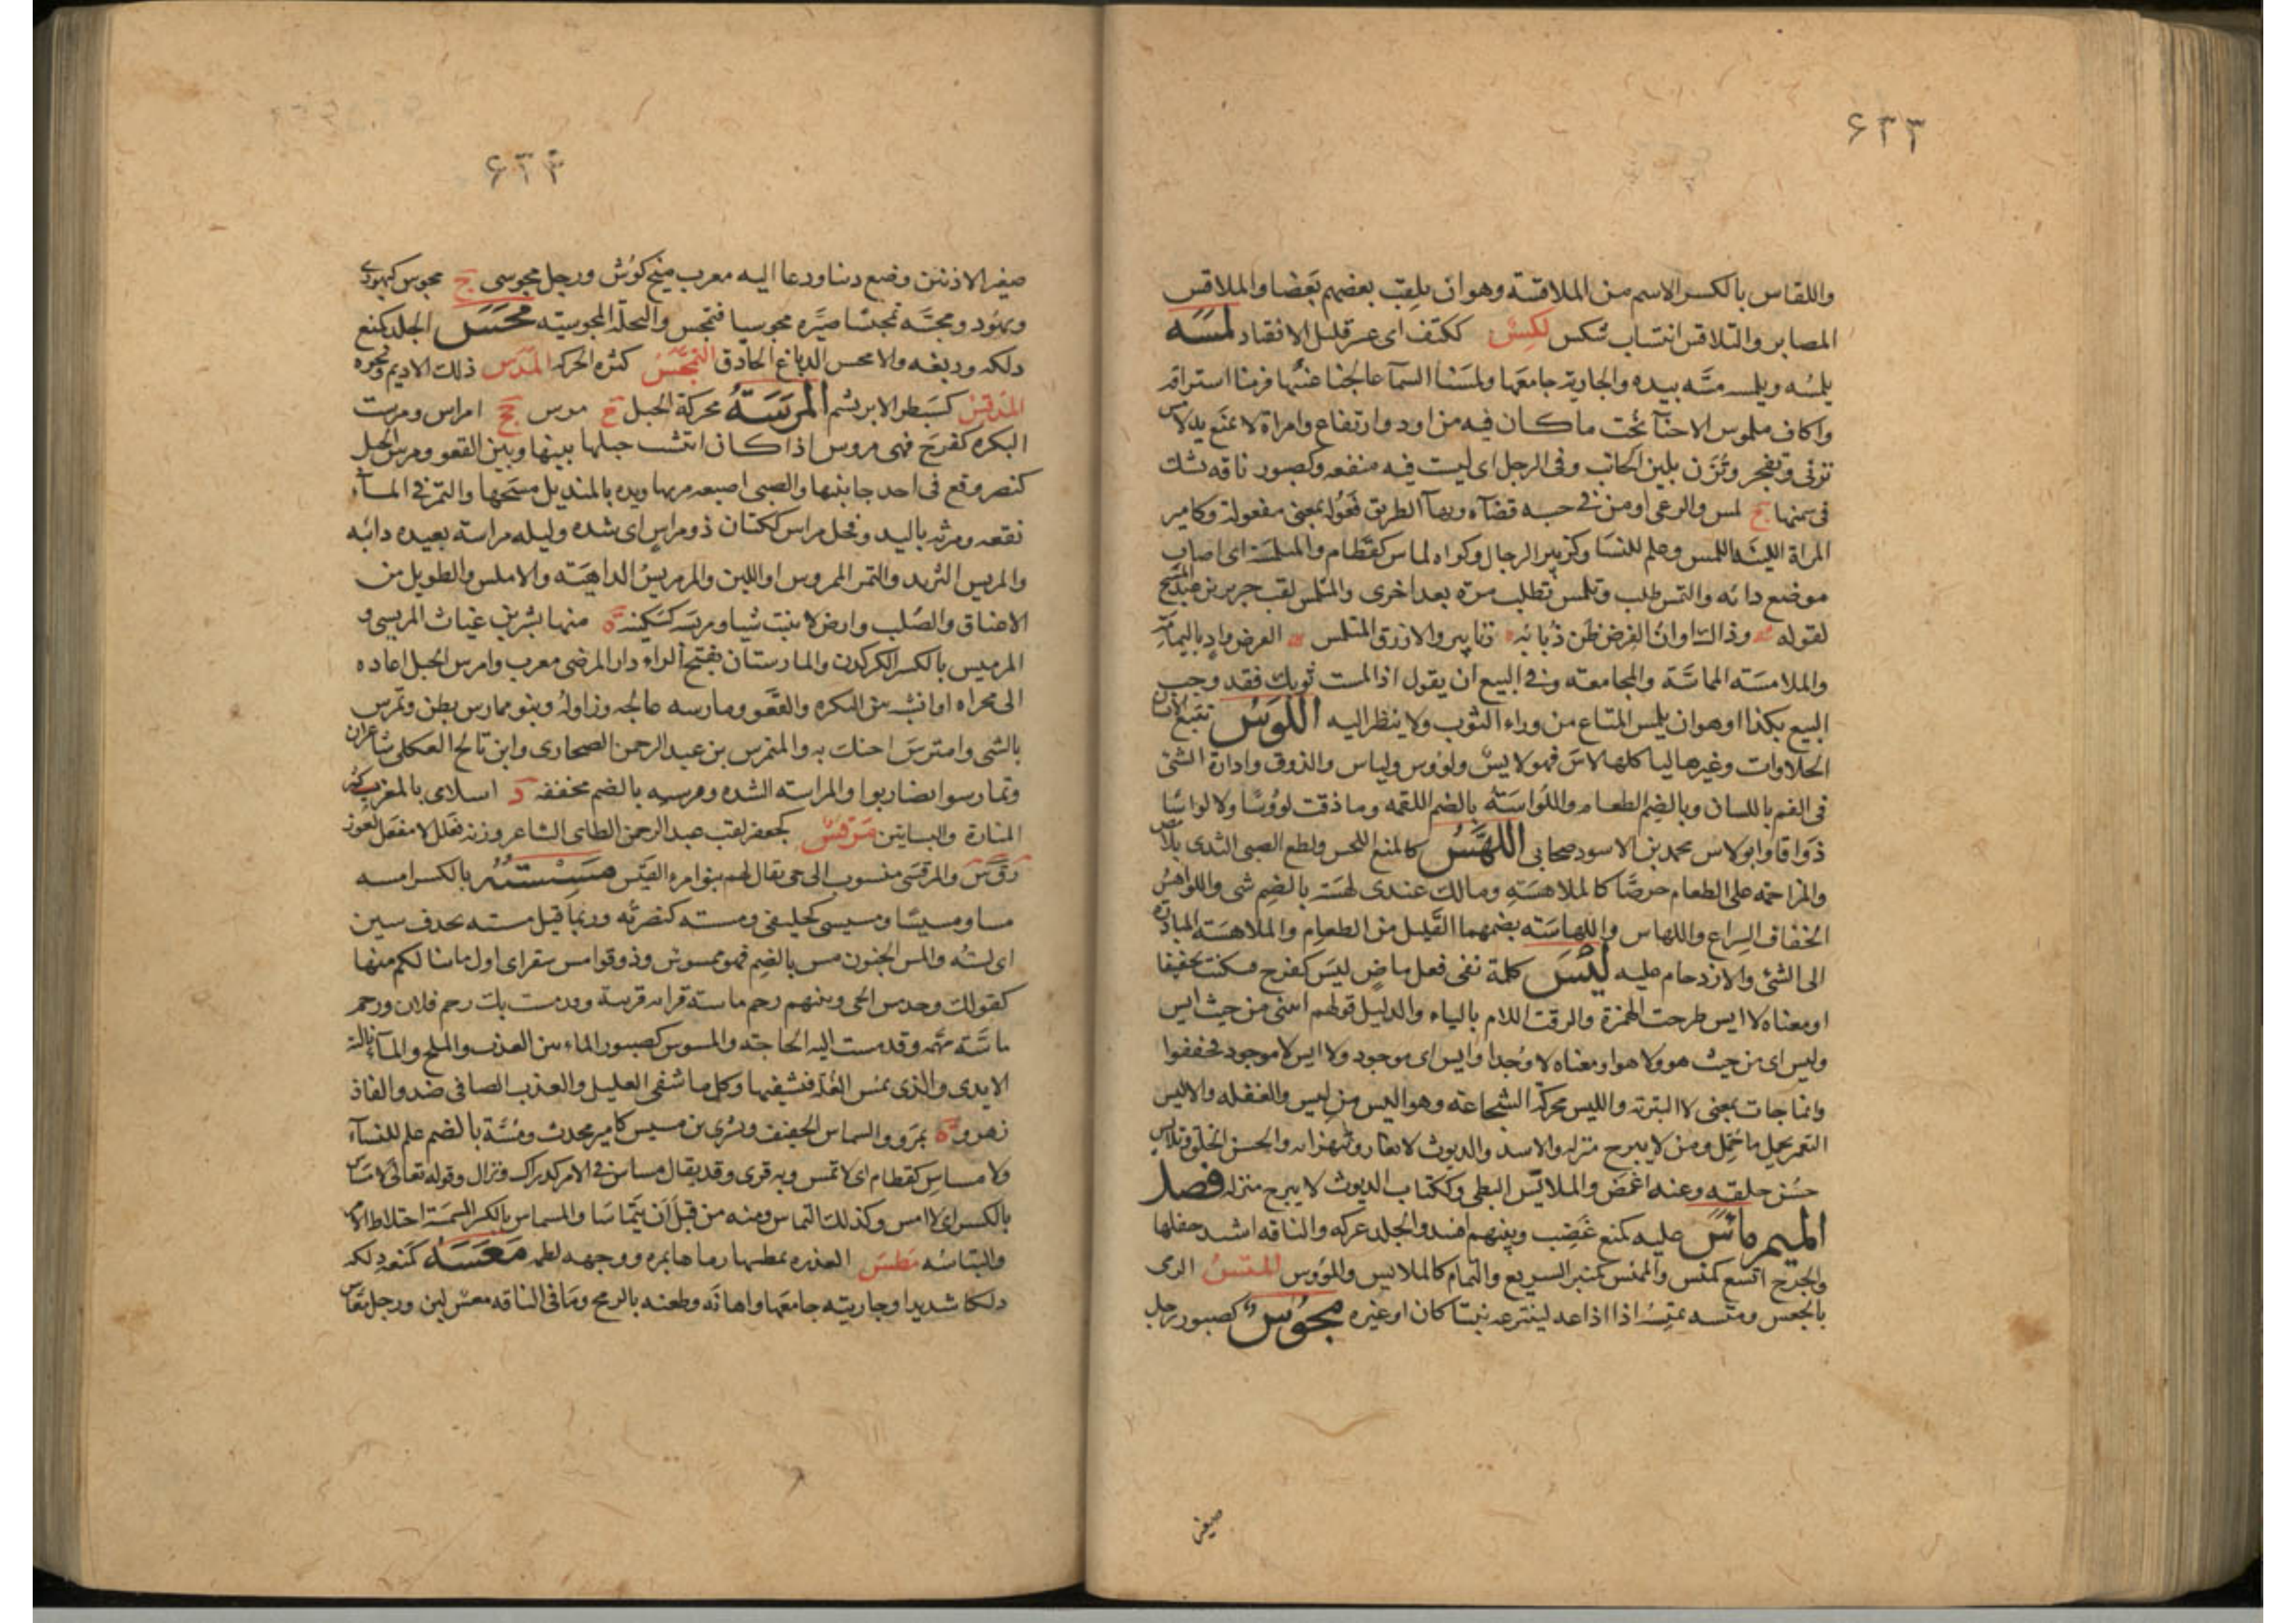 ۶۲۳
واللقاس بالكسر الاسم من الملاقسة وهو ان يلقب بعضهم بعضا والملاقس
المصابر والتلاقس انتساب شكس لكس ككتف اى عسر قليل الانقياد لمسه
يلمسه ويلمسه مسّه بيده والجارية جامعها ولمسنا السمآ عالجنا غيبها فرمنا استراقه
واكاف ملموس الاحنآ نحت ما كان فيه من اود وارتفاع وامراة لا تمنع يد لامس
تزنى وتفجر وتزن بلين الجانب وفى الرجل اى ليست فيه منفعه وكصبور ناقه تشك
فى سمنها ج لمس والدعى او من فى حسبه قضآه وبهآ الطريق فعوله بمعنى مفعولة وكامير
المراة اللينة اللمس وعلم للنسا وكزبير الرجال وكواه لماس كقطام والمتلمسة اى اصاب
موضع دائه والتمس طلب وتلمس تطلب مرة بعد اخرى والمتلمس لقب جرير بن عبد المسيح
لقوله وذاك اوان العرض طن ذبابه زنابير والازرق المتلمس العرض واد باليمامة
والملامسة المماسّة والمجامعة وفى البيع ان يقول اذا لمست ثوبك فقد وجب
البيع بكذا او هو ان يلمس المتاع من وراء الثوب ولا ينظر اليه اللوس تتبع الانسان
الحلاوات وغيرها لياكلها لاس فهو لايس ولؤوس ولياس والذوق وادارة الشئ
فى الفم باللسان وبالضم الطعام واللواسة بالضم اللقمه وما ذقت لوؤسا ولا لواسا
ذواقا وابو لاس محمد بن الاسود صحابى اللهس كالمنع اللحس ولطع الصبى الثدى بلا مص
والمزاحمه على الطعام حرصا كالملاهسة ومالك عندى لهسة بالضم شى واللواهس
الخفاف السراع واللهاس واللهاسة بضمهما القليل من الطعام والملاهسة المبادرة
الى الشئ والازدحام عليه ليس كلمة نفى فعل ماض ليس كفرح فسكنت تخفيفا
او معناه لا ايس طرحت الهمزة والزقت اللام بالياء والدليل قولهم ائتنى من حيث ايس
وليس اى من حيث هو ولا هو او معناه لا وجد او ايس اى موجود ولا ايس لا موجود فخففوا
وانما جات بمعنى لا التبرئه والليس محركة الشجاعة وهو اليس من ليس والغفله والاليس
البعير يحمل ما حُمّل ومن لا يبرح منزله والاسد والديوث لا يغار ويتهزا به والحسن الخلق وتلايس
حسن خلقه وعنه اغمض والملايس البطى وككتاب الديوث لا يبرح منزله فصل
الميم مأس عليه كمنع غضب وبينهم افسد والجلد عركه والناقه اشتد حفلها
والجرح اتسع كمئس والممئس كمنبر السريع والنمام كالمائس والمؤوس المتس الرمى
بالجعس ومتسه يمتسه اذا اذاعد لينتزعه نبتا كان او غيره مجوس كصبور رجل
صغير
۶۲۴
صغير الاذنين وضع دينا ودعا اليه معرب منج كوش ورجل مجوسى ج مجوس كيهودى
ويهود ومجسه تمجيسا صيره مجوسيا فتمجس والنحلة المجوسية محس الجلد كمنع
دلكه ودبغه والامحس الدباغ الحاذق التمجس كثره الحركه المدس ذلك الاديم ونحوه
المدقس كسبطر الابريسم المرسة محركة الحبل ج مرس جج امراس ومرست
البكره كفرح فهى مروس اذا كان انتشب حبلها بينها وبين القعو ومرس الحبل
كنصر وقع فى احد جانبها والصبى اصبعه مرسها ويده بالمنديل مسحها والتمر فى المآء
نقعه ومرثه باليد وفحل مراس ككتان ذو مراس اى شده وليله مراسة بعيده دائبه
والمريس الثريد والتمر الممروس او اللبن والمرمريس الداهية والاملس والطويل من
الاعناق والصلب وارض لا تنبت شيا ومريسه كسكينه ة منها بشر بن غياث المريسى و
المرميس بالكسر الكركدن والمارستان بفتح الراء دار المرضى معرب وامرس الحبل اعاده
الى مجراه او انشبه بين البكره والقعو ومارسه عالجه وزاوله وبنو ممارس بطن وتمرس
بالشى وامترس احتك به والمتمرس بن عبد الرحمن الصحارى وابن ثالح العكلى شاعران
وتمارسوا تضاربوا والمراسه الشده ومرسيه بالضم مخففه د اسلامى بالمغرب كثير
المنارة والبساتين مرقس كجعفر لقب عبد الرحمن الطاى الشاعر وزنه فعلل لا مفعل لعوز
رقس والمرقسى منسوب الى حى يقال لهم بنو امره القيس مسسته بالكسر امسه
مسا ومسيسا ومسيسى كخليفى ومسته كنصرته وربما قيل مسته بحذف سين
اى لمسته والمس الجنون مس بالضم فهو ممسوس وذوقوا مس سقر اى اول ما نالكم منها
كقولك وجد مس الحمى وبينهم رحم ماسة قرابه قريبة وقد مست بك رحم فلان ورحم
ماسّة مهمه وقد مست اليه الحاجة والمسوس كصبور الماء بين العذب والملح والمآء نالته
الايدى والذى يمس الغلة فيشفيها وكل ما شفى العليل والعذب الصافى ضد والفاذ
زهر وة بمرو والمسماس الخفيف وبشرى بن مسيس كامير محدث ومسّة بالضم علم للنسآء
ولا مساس كقطام اى لا تمس وبه قرى وقد يقال مساس فى الامر كدراك ونزال وقوله تعالى لا مساس
بالكسر اى لا امس وكذلك التماس ومنه من قبل ان يتماسا والمسماس بالكسر المسمسة اختلاط الامر
والتباسه مطس العذره يمطسها رماها بمره ووجهه لطمه معسه كمنعه دلكه
دلكا شديدا وجاريته جامعها واهانه وطعنه بالرمح وما فى الناقه معس لبن ورجل معاس